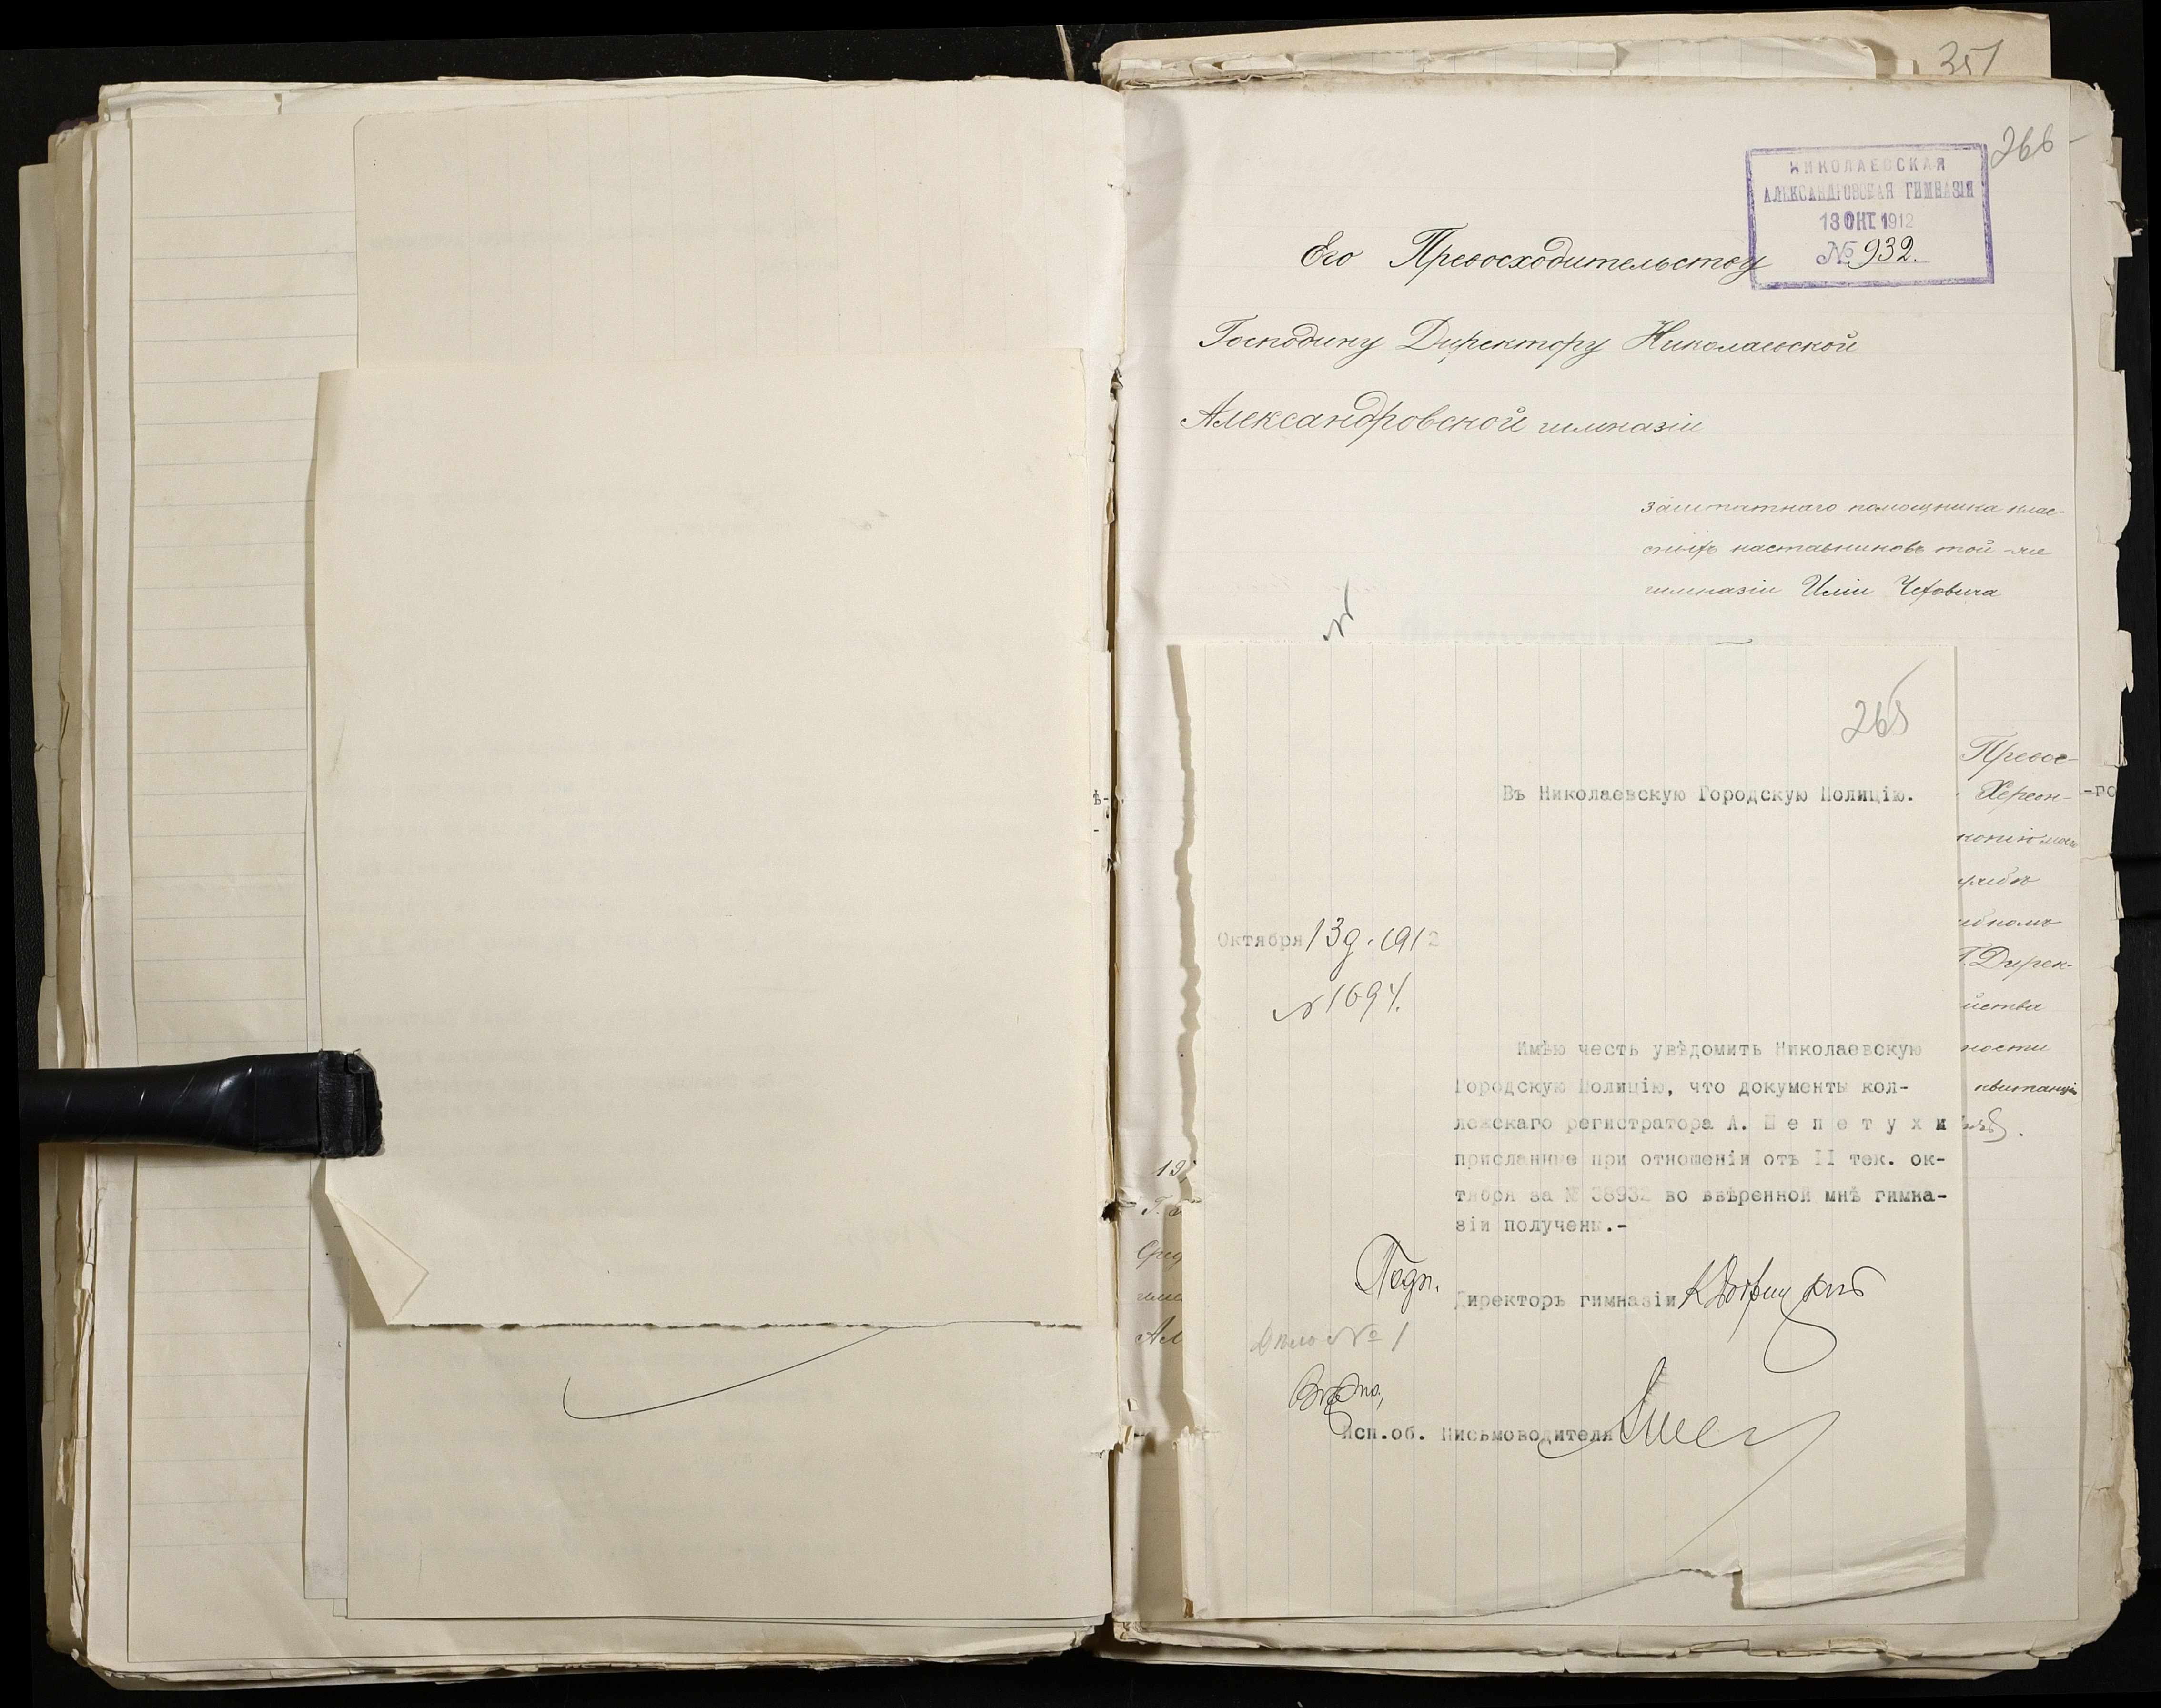 351
266
НИКОЛАЕВСКАЯ
АЛЕКСАНДРОВСКАЯ ГИМНАЗІЯ
13 ОКТ 1912
№ 932.
Его Превосходительству
Господину Директору Николаевской
Александровской гимназіи
заштатнаго помощника клас-
сныхъ наставниковъ той-же
гимназіи Иліи Чеховича
265
Въ Николаевскую Городскую Полицію.
Превос-
Херсон-
-го
копію
Октября 13 д. 1912
№ 1694.
Г. Дирек-
Имѣю честь увѣдомить Николаевскую
Городскую Полицію, что документы кол-
лежскаго регистратора А. Шепетухи
присланные при отношеніи отъ II тек. ок-
тября за № 38932 во ввѣренной мнѣ гимна-
зіи получены.-
ности
квитанціи
Подп.
Директоръ гимназіи
Дѣло № 1
Вѣрно,
Исп.об. Письмоводителя